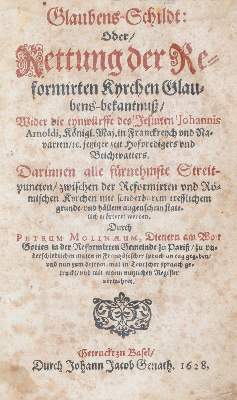 Glaubens-Schildt:
Oder/
Rettung der Re-
formirten Kyrchen Glau-
bens-bekantniß/
Wider die eynwürffe des Jesuiten Johannis
Arnoldi, Königl. Maj. in Franckreych und Na-
varren/rc. jetziger zeit Hofpredigers und
Beichtvatters.
Darinnen alle fürnehmste Streit-
puncten/zwischen der Reformirten und Rö-
mischen Kyrchen mit
grunde/und hällem augenscheyn
erörtert werden.
Durch
PETRUM MOLINÆUM, Dienern am Wort
Gottes in der Reformirten Gemeinde zu Pariß/zu
malen in Frantzösischer sprach
und nun zum mal in Teutscher spraach ge-
truckt/und mit eynem nutzlichen Register
vermehret.
Getruckt zu Basel/
Durch Johann Jacob Genath. 1628.